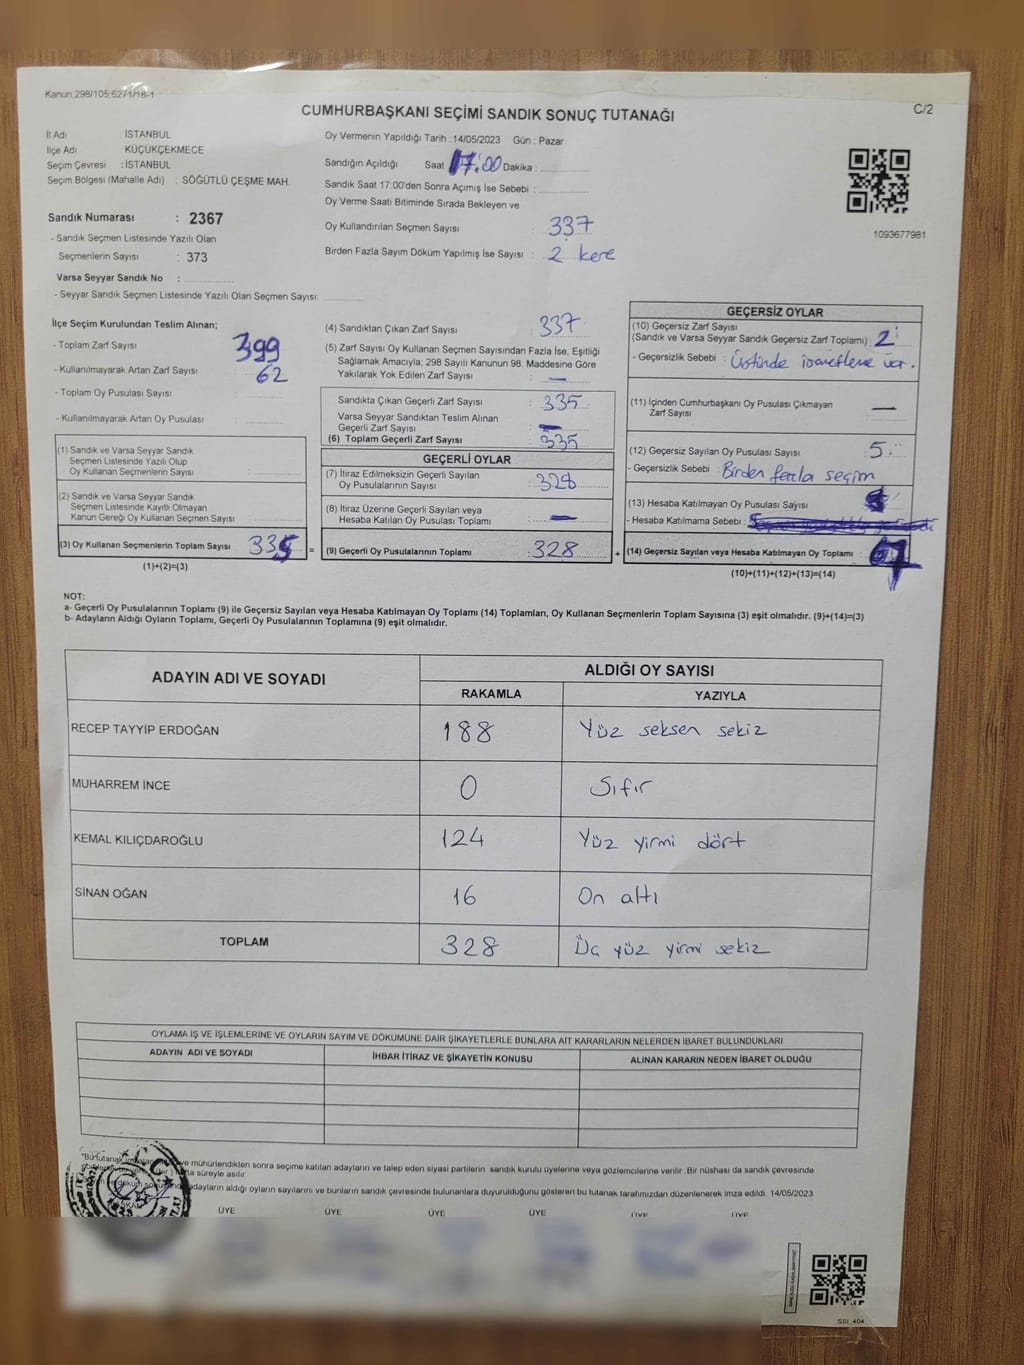 Kanun,298/105,62/1/18-1
CUMHURBAŞKANI SEÇİMİ SANDIK SONUÇ TUTANAĞI
C/2
İl Adı İSTANBUL
İlçe Adı KÜÇÜKÇEKMECE
Seçim Çevresi : İSTANBUL
Seçim Bölgesi (Mahalle Adı) : SÖĞÜTLÜ ÇEŞME MAH.
Sandık Numarası : 2367
- Sandık Seçmen Listesinde Yazılı Olan
Seçmenlerin Sayısı : 373
Varsa Seyyar Sandık No :
- Seyyar Sandık Seçmen Listesinde Yazılı Olan Seçmen Sayısı:
Oy Vermenin Yapıldığı Tarih : 14/05/2023 Gün : Pazar
Sandığın Açıldığı Saat 17:00 Dakika :
Sandık Saat 17:00'den Sonra Açımış İse Sebebi :
Oy Verme Saati Bitiminde Sırada Bekleyen ve
Oy Kullandırılan Seçmen Sayısı : 337
Birden Fazla Sayım Döküm Yapılmış İse Sayısı : 2 kere
1093677981
İlçe Seçim Kurulundan Teslim Alınan;
- Toplam Zarf Sayısı : 399
- Kullanılmayarak Artan Zarf Sayısı : 62
- Toplam Oy Pusulası Sayısı :
- Kullanılmayarak Artan Oy Pusulası :
(1) Sandık ve Varsa Seyyar Sandık
Seçmen Listesinde Yazılı Olup
Oy Kullanan Seçmenlerin Sayısı :
(2) Sandık ve Varsa Seyyar Sandık
Seçmen Listesinde Kayıtlı Olmayan
Kanun Gereği Oy Kullanan Seçmen Sayısı :
(3) Oy Kullanan Seçmenlerin Toplam Sayısı : 335 =
(1)+(2)=(3)
(4) Sandıktan Çıkan Zarf Sayısı : 337
(5) Zarf Sayısı Oy Kullanan Seçmen Sayısından Fazla İse, Eşitliği
Sağlamak Amacıyla, 298 Sayılı Kanunun 98. Maddesine Göre
Yakılarak Yok Edilen Zarf Sayısı : —
Sandıkta Çıkan Geçerli Zarf Sayısı : 335
Varsa Seyyar Sandıktan Teslim Alınan
Geçerli Zarf Sayısı : —
(6) Toplam Geçerli Zarf Sayısı : 335
GEÇERLİ OYLAR
(7) İtiraz Edilmeksizin Geçerli Sayılan
Oy Pusulalarının Sayısı : 328
(8) İtiraz Üzerine Geçerli Sayılan veya
Hesaba Katılan Oy Pusulası Toplamı : —
(9) Geçerli Oy Pusulalarının Toplamı : 328 +
GEÇERSİZ OYLAR
(10) Geçersiz Zarf Sayısı
(Sandık ve Varsa Seyyar Sandık Geçersiz Zarf Toplamı) : 2
- Geçersizlik Sebebi : Üstünde işaretleme var.
(11) İçinden Cumhurbaşkanı Oy Pusulası Çıkmayan
Zarf Sayısı : —
(12) Geçersiz Sayılan Oy Pusulası Sayısı : 5
- Geçersizlik Sebebi : Birden fazla seçim
(13) Hesaba Katılmayan Oy Pusulası Sayısı :
- Hesaba Katılmama Sebebi :
(14) Geçersiz Sayılan veya Hesaba Katılmayan Oy Toplamı : 7
(10)+(11)+(12)+(13)=(14)
NOT:
a- Geçerli Oy Pusulalarının Toplamı (9) ile Geçersiz Sayılan veya Hesaba Katılmayan Oy Toplamı (14) Toplamları, Oy Kullanan Seçmenlerin Toplam Sayısına (3) eşit olmalıdır. (9)+(14)=(3)
b- Adayların Aldığı Oyların Toplamı, Geçerli Oy Pusulalarının Toplamına (9) eşit olmalıdır.
ADAYIN ADI VE SOYADI ALDIĞI OY SAYISI
RAKAMLA YAZIYLA
RECEP TAYYİP ERDOĞAN 188 Yüz seksen sekiz
MUHARREM İNCE 0 Sıfır
KEMAL KILIÇDAROĞLU 124 Yüz yirmi dört
SİNAN OĞAN 16 On altı
TOPLAM 328 Üç yüz yirmi sekiz
OYLAMA İŞ VE İŞLEMLERİNE VE OYLARIN SAYIM VE DÖKÜMÜNE DAİR ŞİKAYETLERLE BUNLARA AİT KARARLARIN NELERDEN İBARET BULUNDUKLARI
ADAYIN ADI VE SOYADI İHBAR İTİRAZ VE ŞİKAYETİN KONUSU ALINAN KARARIN NEDEN İBARET OLDUĞU
"Bu tutanak ve mühürlendikten sonra seçime katılan adayların ve talep eden siyasi partilerin sandık kurulu üyelerine veya gözlemcilerine verilir. Bir nüshası da sandık çevresinde
süreyle asılır.
adayların aldığı oyların sayılarını ve bunların sandık çevresinde bulunanlara duyurulduğunu gösteren bu tutanak tarafımızdan düzenlenerek imza edildi. 14/05/2023
ÜYE ÜYE ÜYE ÜYE ÜYE ÜYE
SSI_404